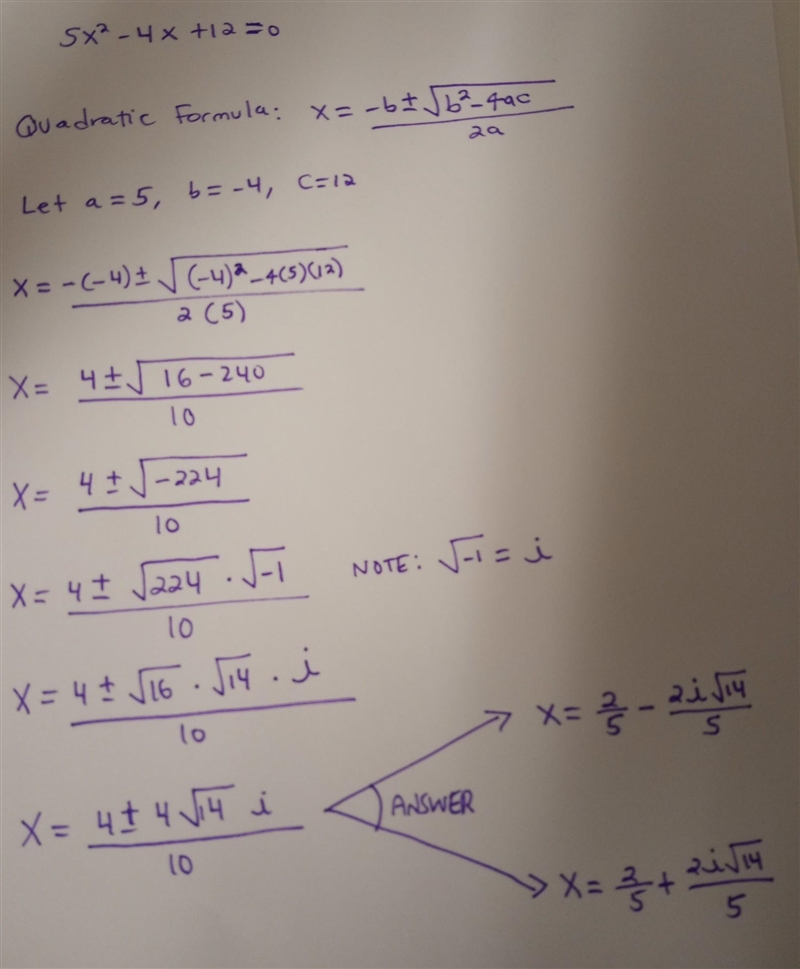 5x² - 4x + 12 = 0
Quadratic Formula: x = (-b ± √(b² - 4ac)) / 2a
Let a = 5, b = -4, c = 12
x = (-(-4) ± √((-4)² - 4(5)(12))) / 2(5)
x = (4 ± √(16 - 240)) / 10
x = (4 ± √(-224)) / 10
x = (4 ± √224 · √-1) / 10 NOTE: √-1 = i
x = (4 ± √16 · √14 · i) / 10
x = 2/5 - 2i√14/5
x = (4 ± 4√14 i) / 10 ANSWER
x = 2/5 + 2i√14/5